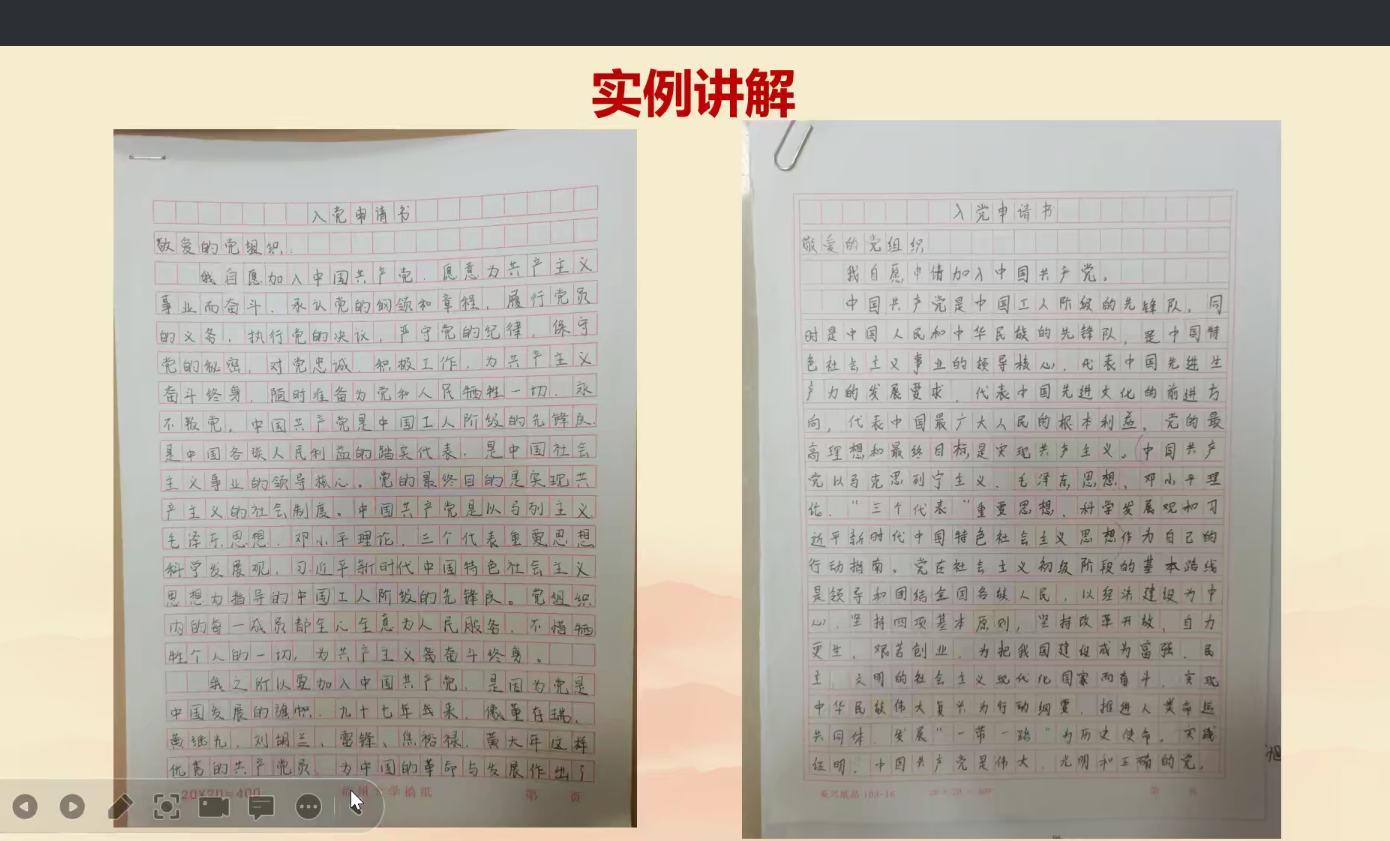 实例讲解
入党申请书
敬爱的党组织:
我自愿加入中国共产党,愿意为共产主义
事业而奋斗,承认党的纲领和章程,履行党员
的义务,执行党的决议,严守党的纪律,保守
党的秘密,对党忠诚,积极工作,为共产主义
奋斗终身,随时准备为党和人民牺牲一切,永
不叛党。中国共产党是中国工人阶级的先锋队,
是中国各族人民利益的踏实代表,是中国社会
主义事业的领导核心。党的最终目的是实现共
产主义的社会制度。中国共产党是以马列主义
毛泽东思想,邓小平理论,三个代表重要思想
科学发展观,习近平新时代中国特色社会主义
思想为指导的中国工人阶级的先锋队。党组织
内的每一成员都全心全意为人民服务,不惜牺
牲个人的一切,为共产主义奋斗终身。
我之所以要加入中国共产党,是因为党是
中国发展的旗帜,九十七年来,像董存瑞,
黄继光,刘胡兰,雷锋,焦裕禄,黄大年这样
优秀的共产党员,为中国的革命与发展作出了
20×20=400
第 页
入党申请书
敬爱的党组织
我自愿申请加入中国共产党。
中国共产党是中国工人阶级的先锋队,同
时是中国人民和中华民族的先锋队,是中国特
色社会主义事业的领导核心,代表中国先进生
产力的发展要求,代表中国先进文化的前进方
向,代表中国最广大人民的根本利益,党的最
高理想和最终目标是实现共产主义。(中国共产
党以马克思列宁主义、毛泽东思想、邓小平理
论、“三个代表”重要思想、科学发展观和习
近平新时代中国特色社会主义思想作为自己的
行动指南。党在社会主义初级阶段的基本路线
是领导和团结全国各族人民,以经济建设为中
心,坚持四项基本原则,坚持改革开放,自力
更生,艰苦创业,为把我国建设成为富强、民
主、文明的社会主义现代化国家而奋斗,实现
中华民族伟大复兴为行动纲要,推进人类命运
共同体,发展“一带一路”为历史使命。实践
证明,中国共产党是伟大、光明和正确的党。
20×20=400
第 页